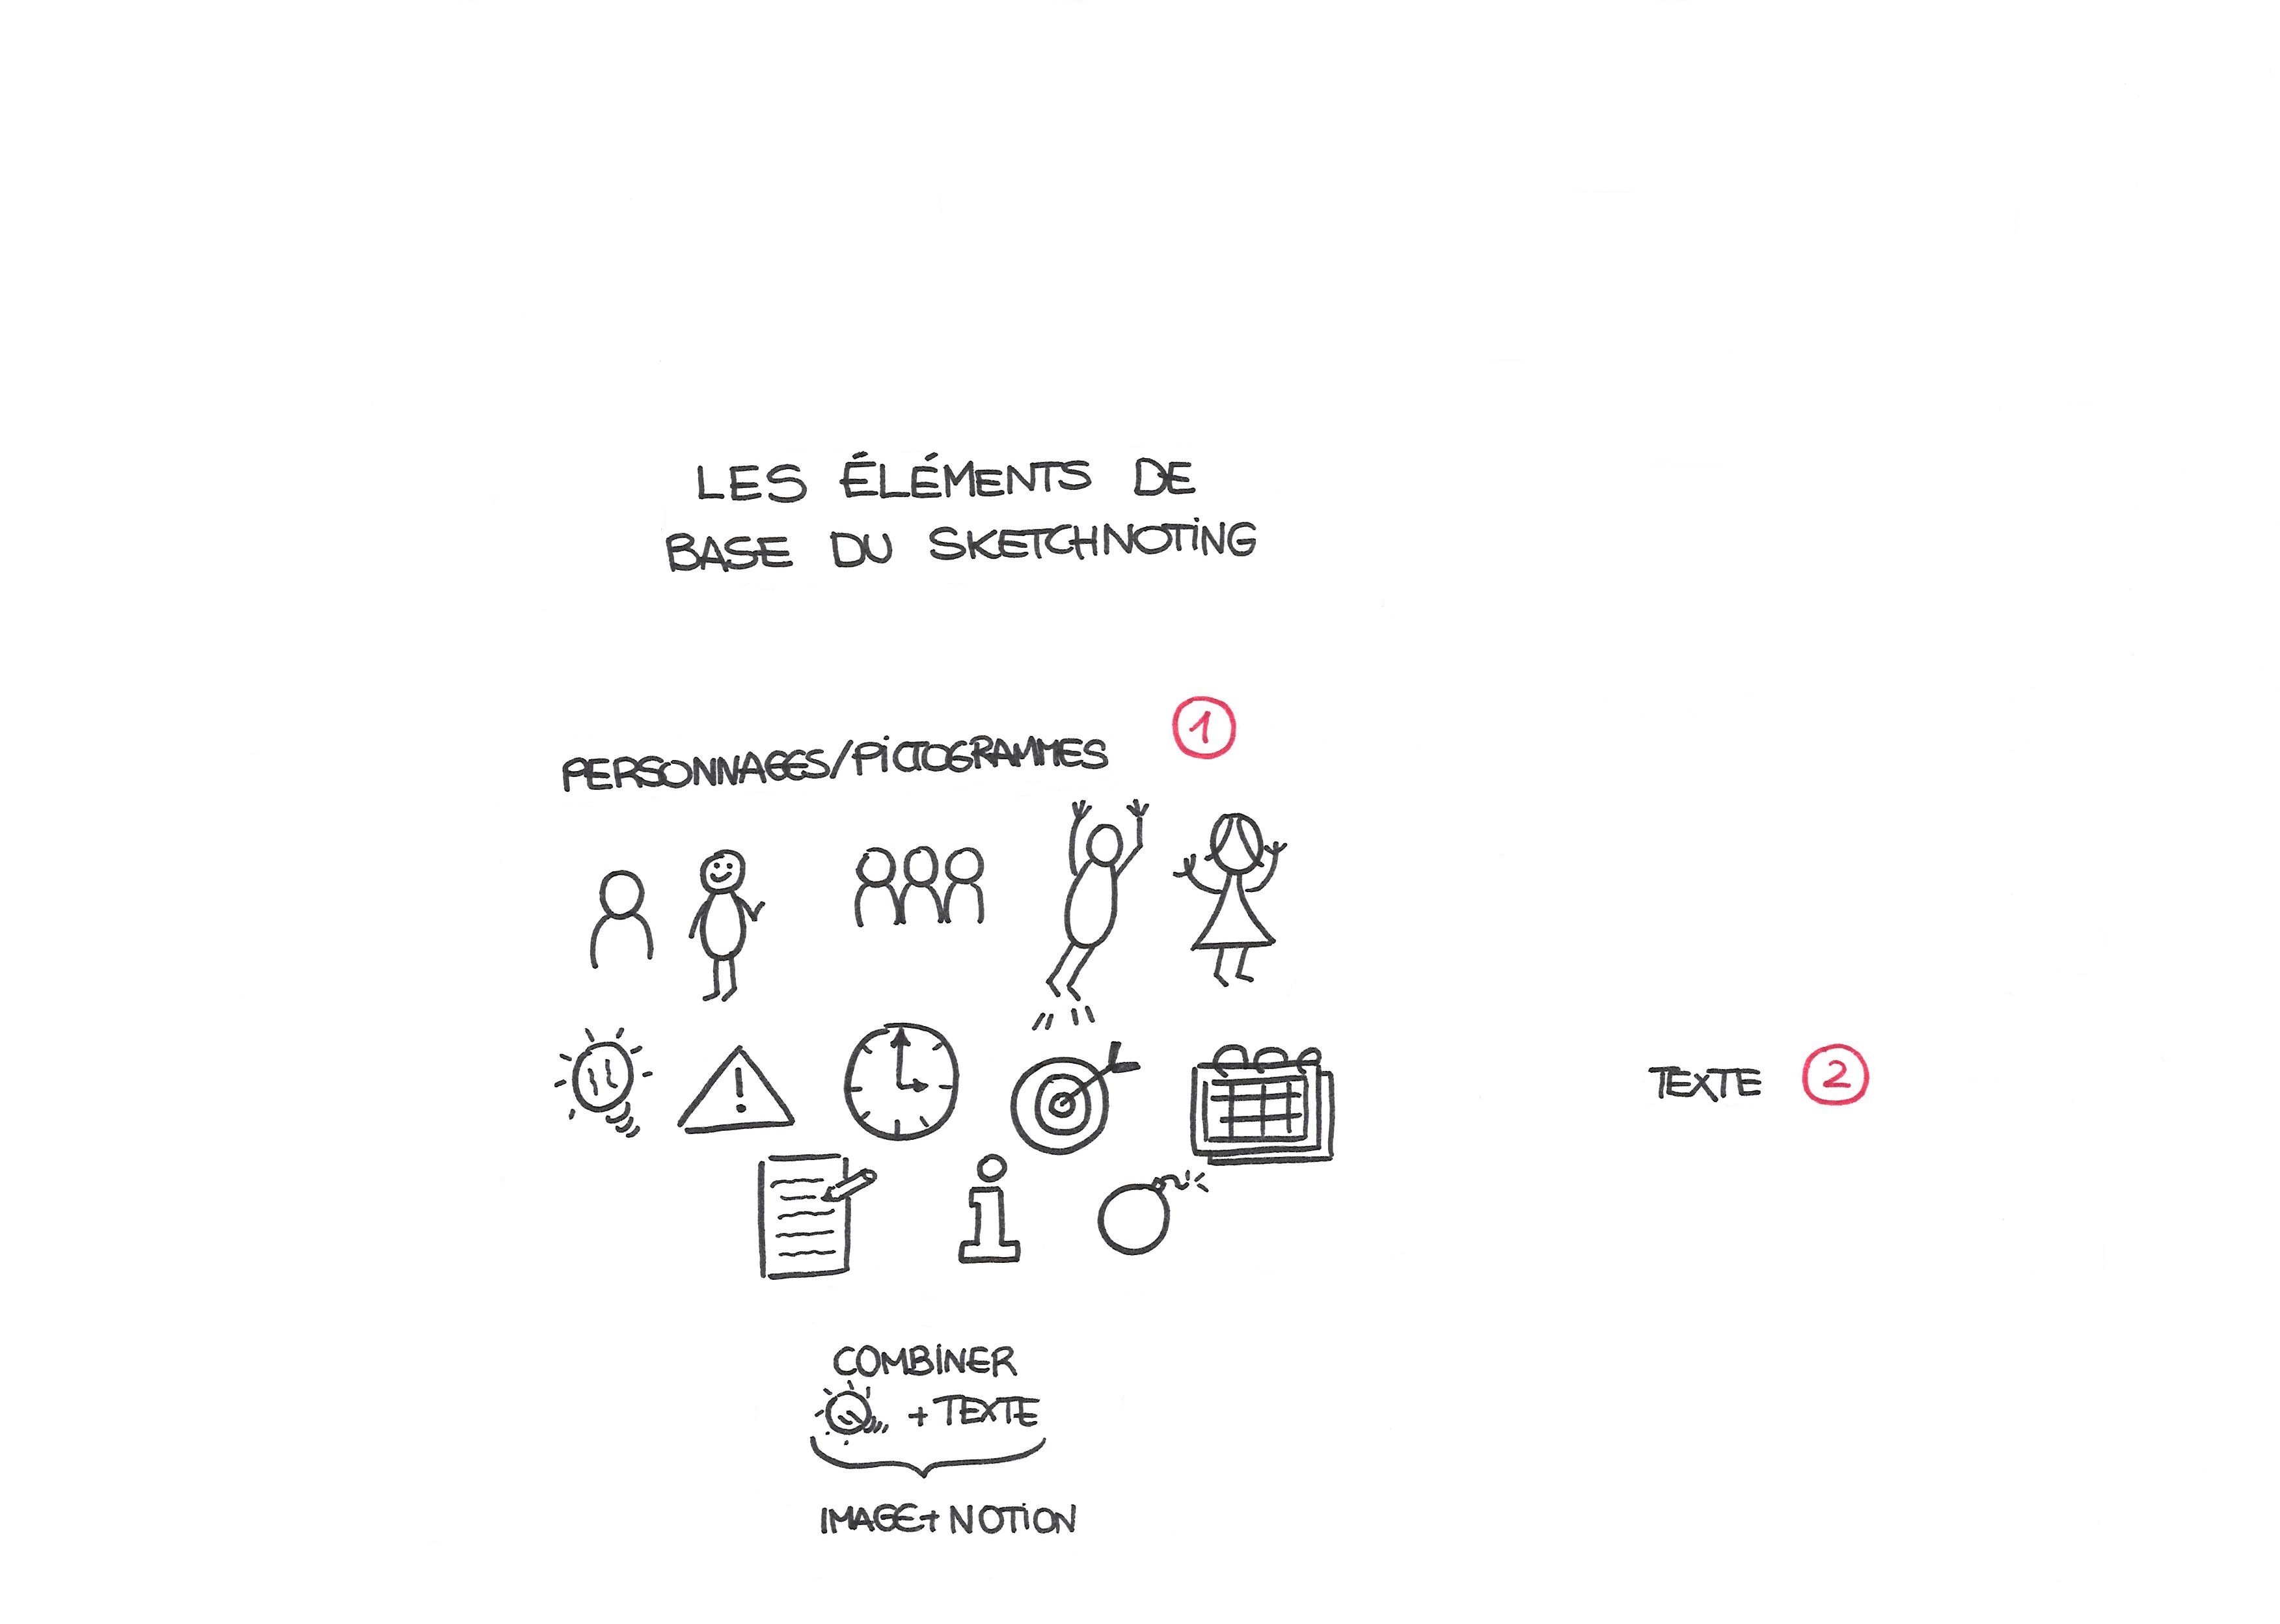 LES ÉLÉMENTS DE
BASE DU SKETCHNOTING
PERSONNAGES/PICTOGRAMMES 1
!
i
TEXTE 2
COMBINER
+ TEXTE
IMAGE + NOTION